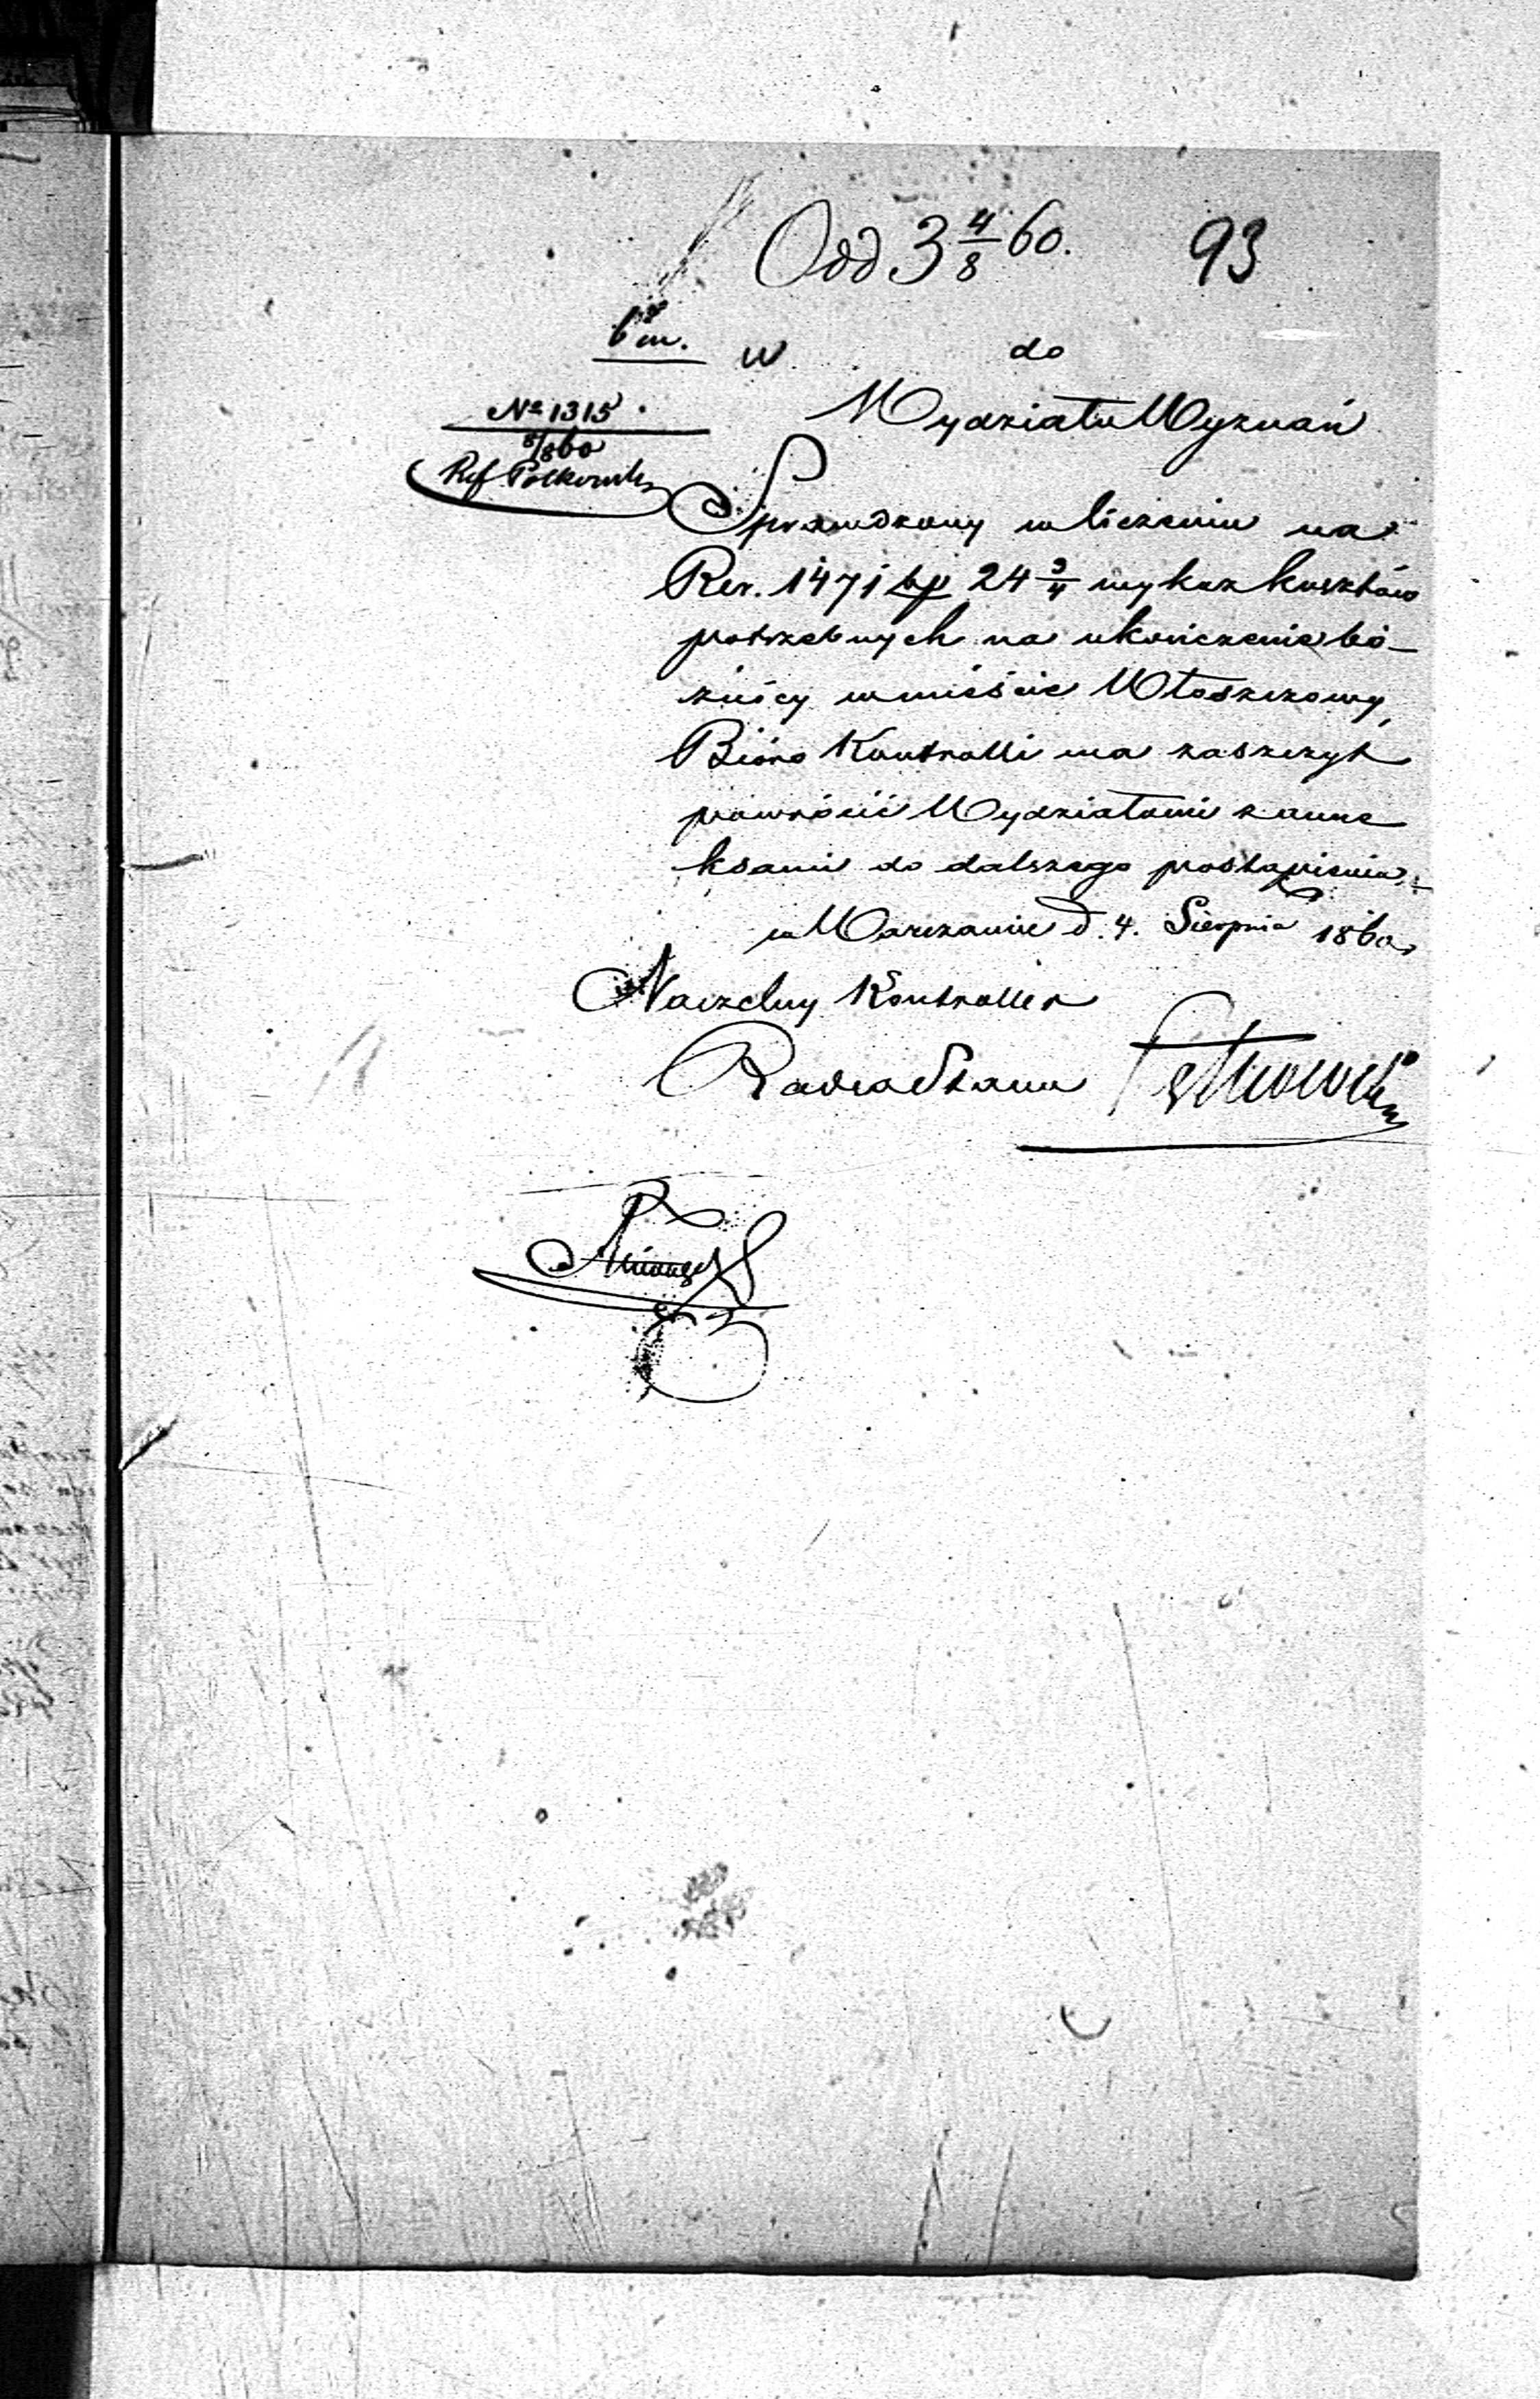 Odd 3 4/8 60. 93
w do
Wydziału Wyznań
No 1315
8/8 60
Ref
Sprawdzony w liczeniu na
Rsr. 1471 kp 24 3/4 wykaz kosztów
potrzebnych na ukończenie bó-
żnicy w mieście Włoszczowy,
Bióro Kontrolli ma zaszczyt
powrócić Wydziałowi z anne
ksami do dalszego postąpienia.
w Warszawie d. 4. Sierpnia 1860
Naczelny Kontroller
Radca Stanu